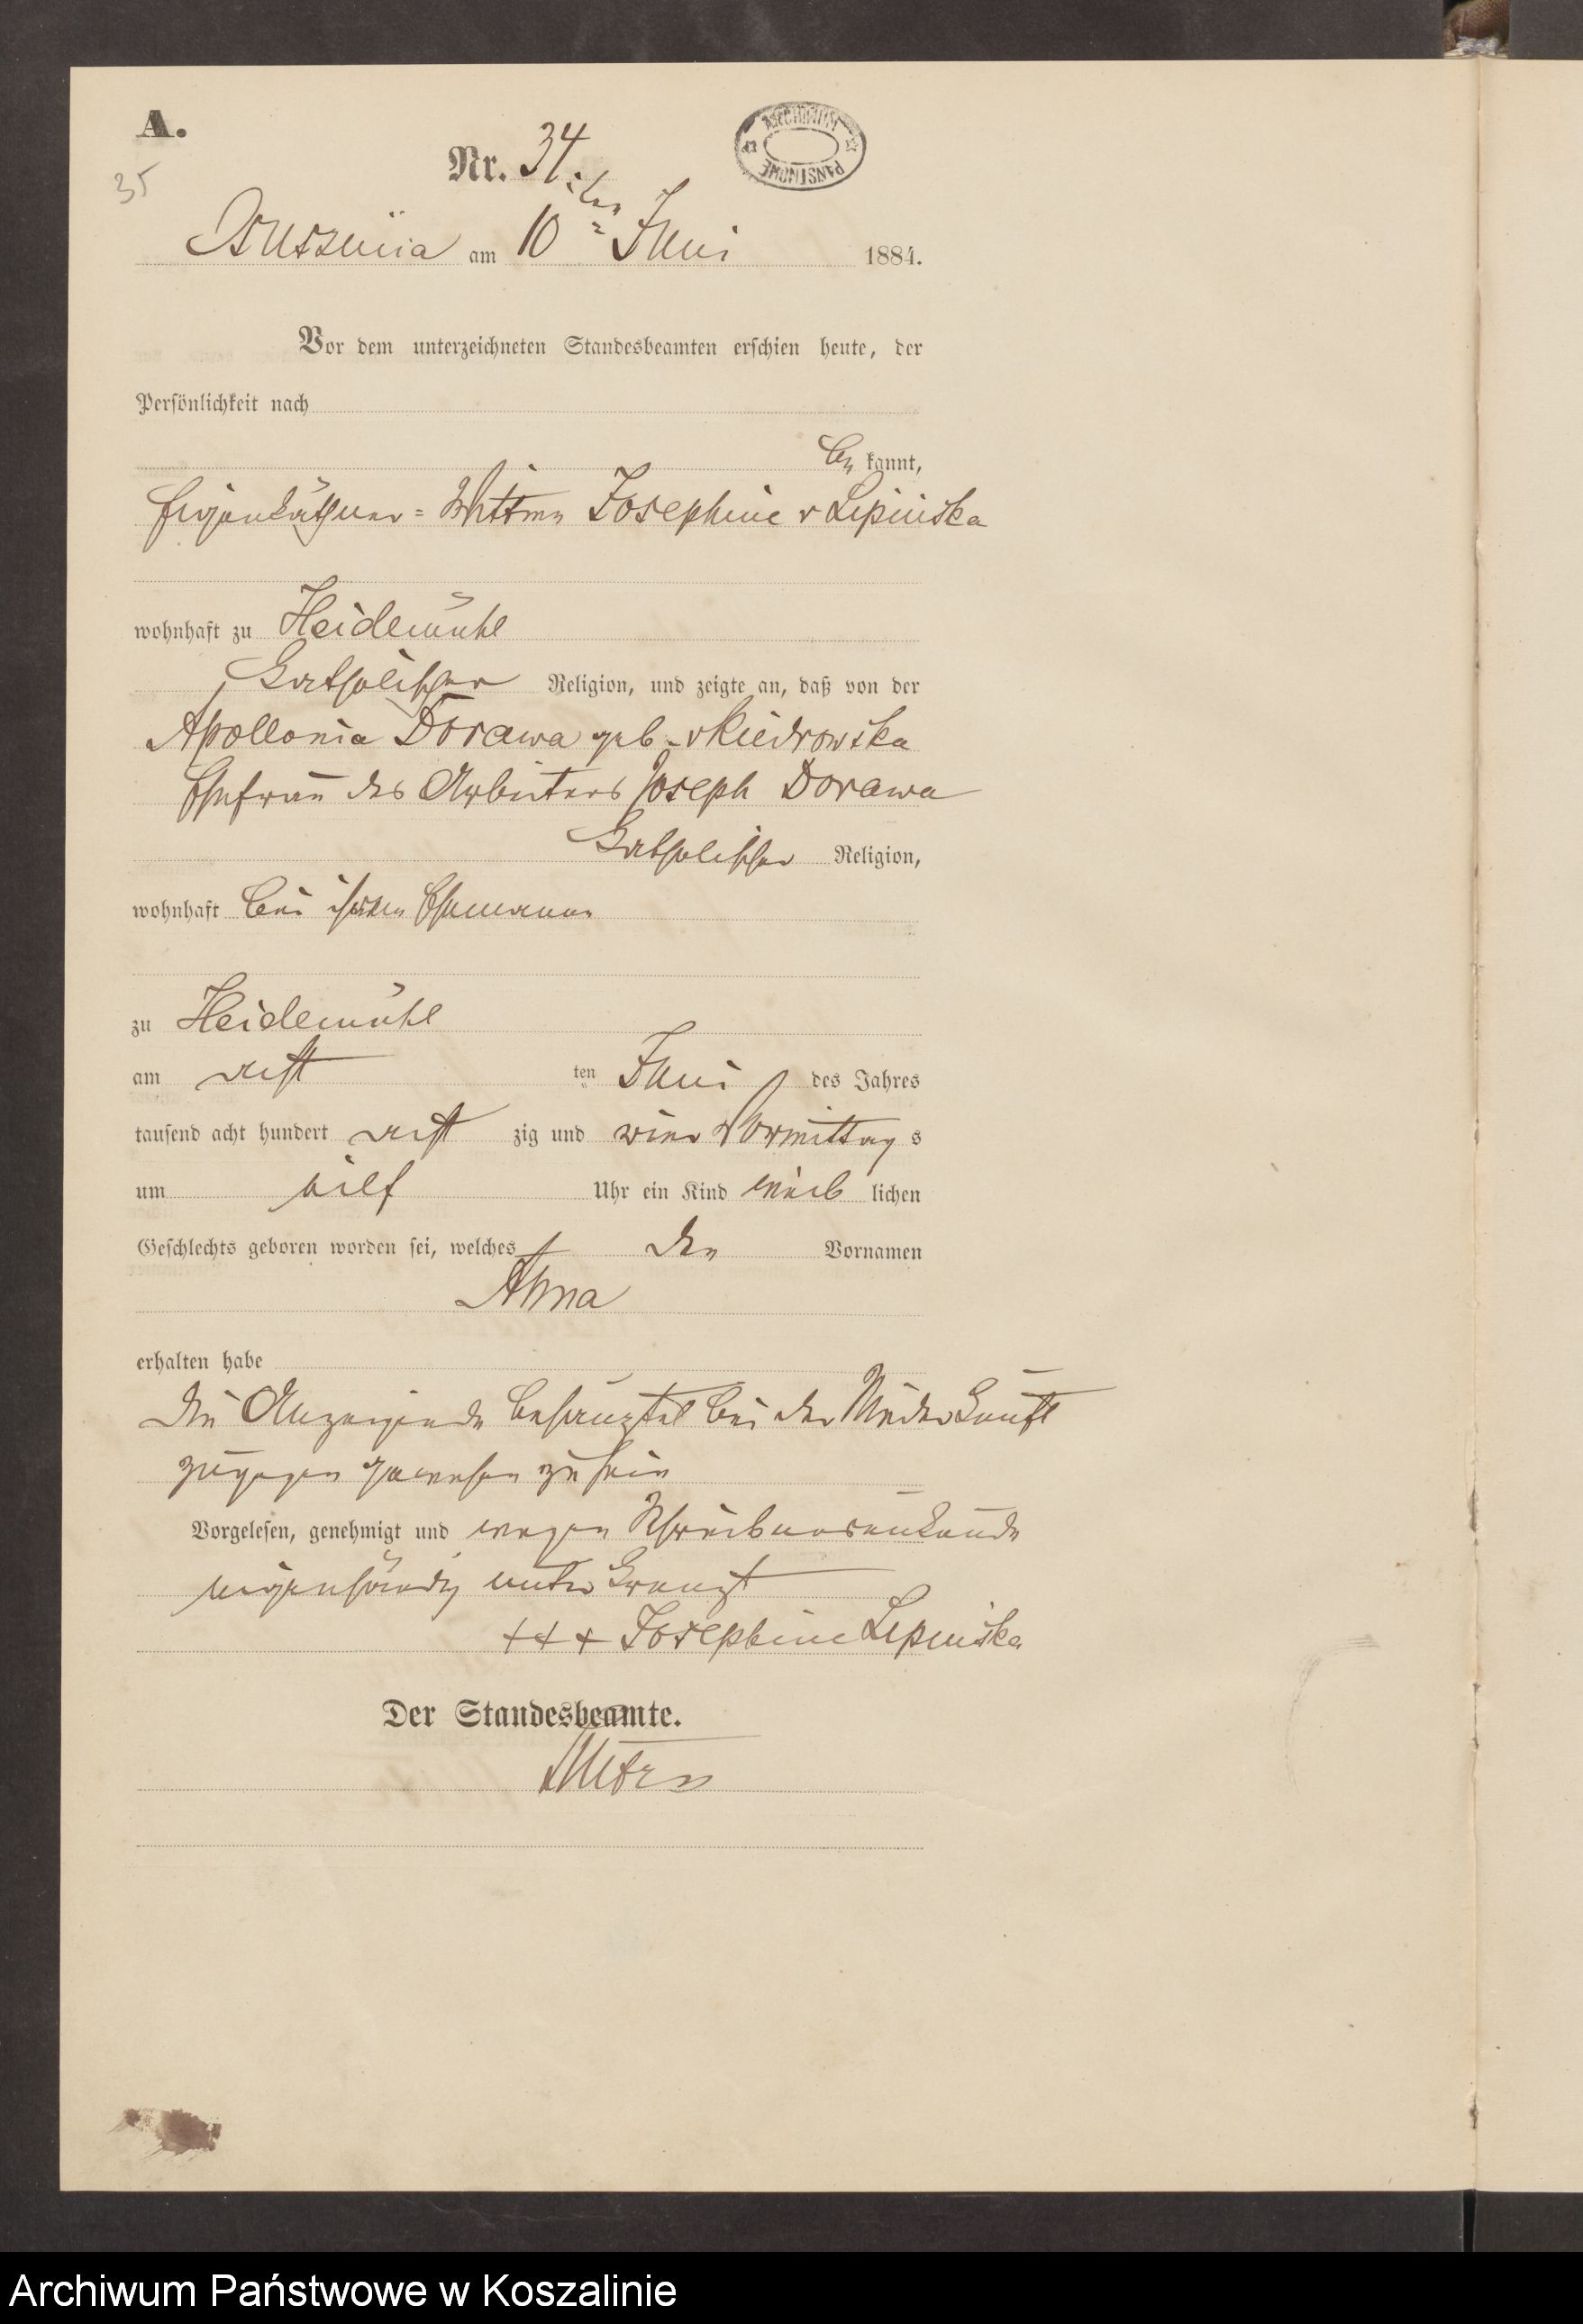 A.
35
Nr. 34.
ARCHIWUM PAŃSTWOWE
am 10ten Juni 1884.
Vor dem unterzeichneten Standesbeamten erschien heute, der
Persönlichkeit nach
be kannt,
Eigenkäthner = Wittwe Josephine v Lipinska
wohnhaft zu Heidemühl
katholischer Religion, und zeigte an, daß von der
Apollonia Dorawa geb. v Kiedrowska
Ehefrau des Arbeiters Joseph Dorawa
katholischer Religion,
wohnhaft bei ihrem Ehemann
zu Heidemühl
am acht ten Juni des Jahres
tausend acht hundert acht zig und vier Vormittag s
um eilf Uhr ein Kind weib lichen
Geschlechts geboren worden sei, welches den Vornamen
Anna
erhalten habe
die Anzeigende bei der Niederkunft
zugegen gewesen zu sein
Vorgelesen, genehmigt und wegen Schreibensunkunde
eigenhändig unterkreuzt
+++ Josephine Lipinska
Der Standesbeamte.
Archiwum Państwowe w Koszalinie